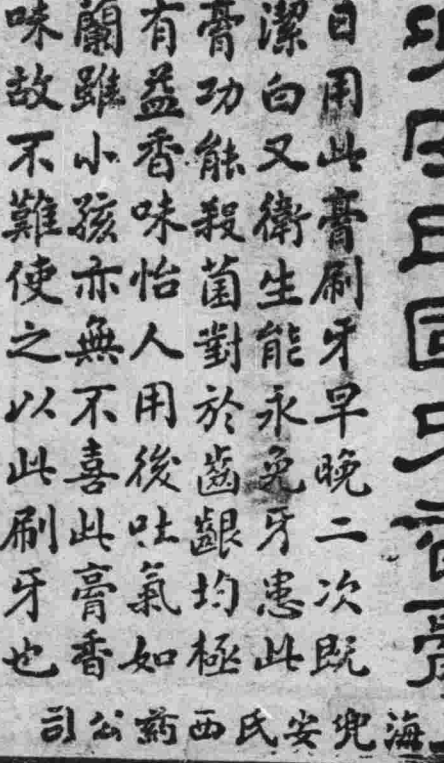 日用此膏刷牙早晚二次既
潔白又衛生能永免牙患此
膏功能殺菌對於齒齦均極
有益香味怡人用後吐氣如
蘭雖小孩亦無不喜此膏香
味故不難使之以此刷牙也
海兜安氏西葯公司